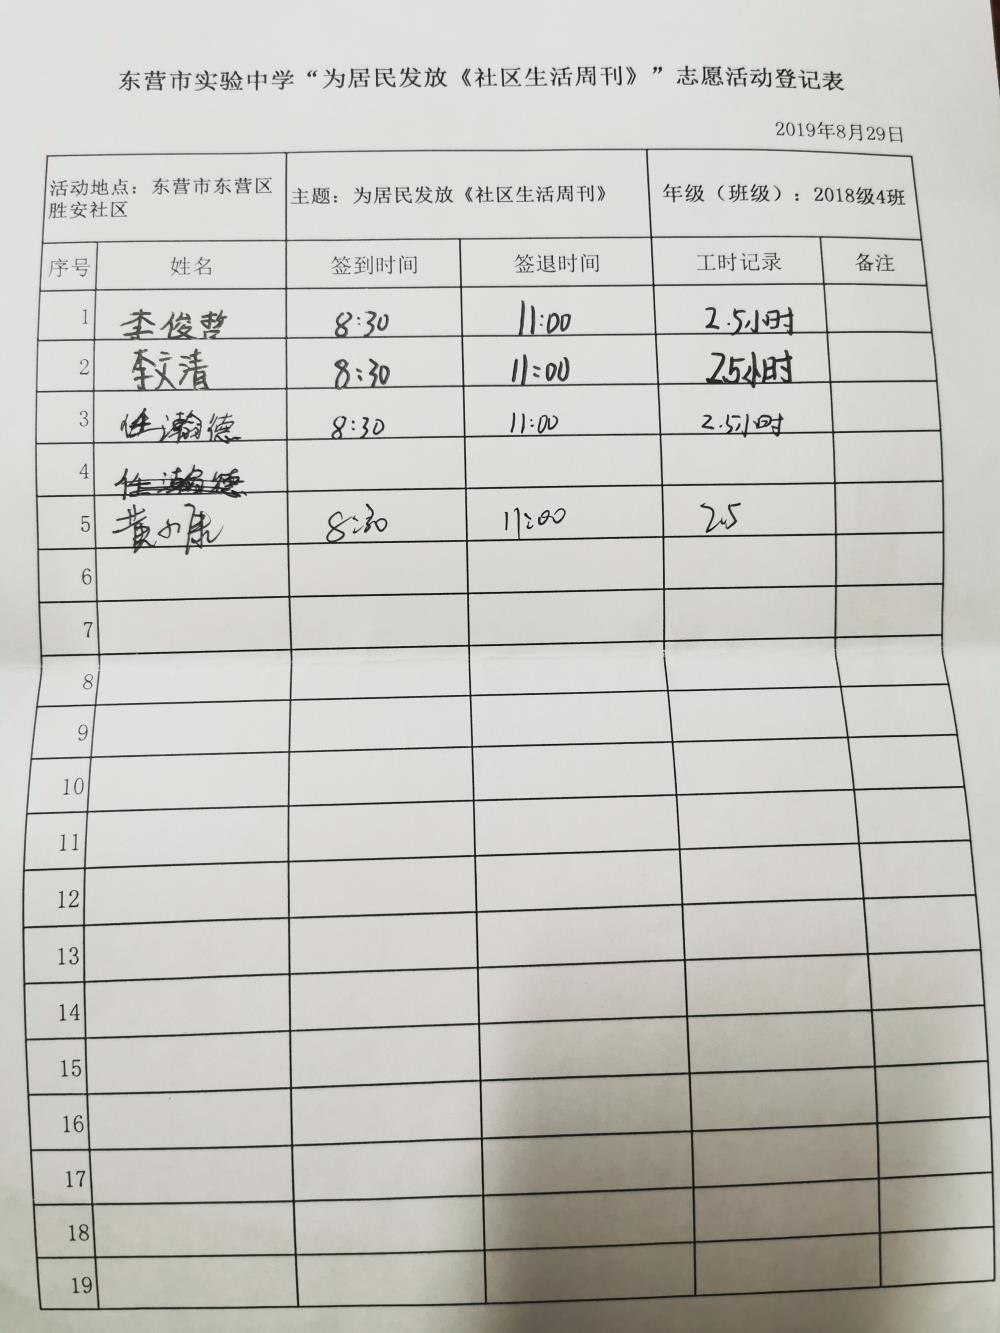 东营市实验中学“为居民发放《社区生活周刊》”志愿活动登记表
2019年8月29日
活动地点：东营市东营区胜安社区 主题：为居民发放《社区生活周刊》 年级（班级）：2018级4班
序号 姓名 签到时间 签退时间 工时记录 备注
1 李俊哲 8:30 11:00 2.5小时
2 李文清 8:30 11:00 2.5小时
3 任瀚德 8:30 11:00 2.5小时
4 任瀚德
5 黄小康 8:30 11:00 2.5
6
7
8
9
10
11
12
13
14
15
16
17
18
19